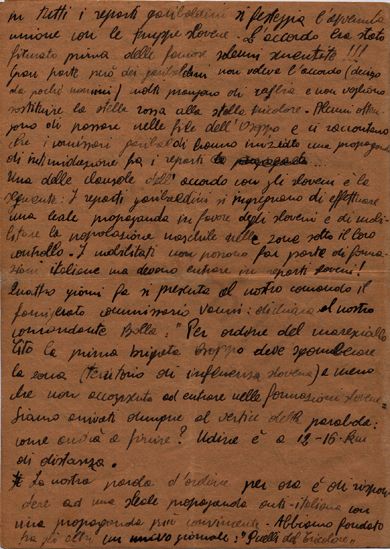 in tutti i reparti garibaldini si festeggia l'avvenuta
unione con le truppe slovene. L'accordo era stato
firmato prima delle famose solenni smentite!!!
Gran parte però dei garibaldini non voleva l'accordo (dirigo
da pochi uomini) molti piangono di rabbia e non vogliono
sostituire la stella rossa alla stella tricolore. Alcuni
sono di passare nelle file dell'Osoppo e ci raccontano
che i comissari garibaldi hanno iniziato una propaganda
di intimidazione fra i reparti
Una delle clausole dell'accordo con gli sloveni è la
seguente: I reparti garibaldini si impegnano di effettuare
una leale propaganda in favore degli sloveni e di mobi-
litare la popolazione maschile nelle zone sotto il loro
controllo. I mobilitati non possono far parte di forma-
zioni italiane ma devono entrare in reparti sloveni!
Quattro giorni fa si presenta al nostro comando il
famigerato commissario Vanni: dichiara al nostro
comandante Bolla: "Per ordine del maresciallo
Tito la prima brigata Osoppo deve sgomberare
la zona (territorio di influenza slovena) a meno
che non acconsenta ad entrare nelle formazioni slovene"
Siamo arrivati dunque al vertice della parabola:
come andrà a finire? Udine è a 12-16 Km
di distanza.
La nostra parola d'ordine per ora è di rispon
dere ad una sleale propaganda anti-italiana con
una propaganda più convincente. Abbiamo fondato
tra gli altri un nuovo giornale: "Quelli del Tricolore"